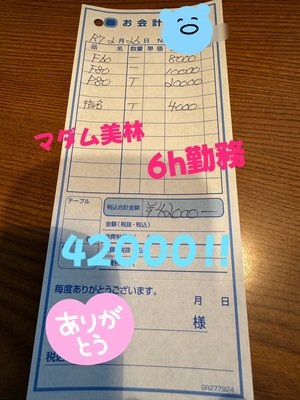 お会計
R7 2月22日
品名 数量 単価
F60 一 8000
F80 一 10000
P80 T 20000
指名 T 4000
マダム美林
6h勤務
テーブル
税込合計金額 ¥42000-
金額(税抜・税込)
42000!!
毎度ありがとうございます。
月 日
ありがとう
様
税込
GR277924